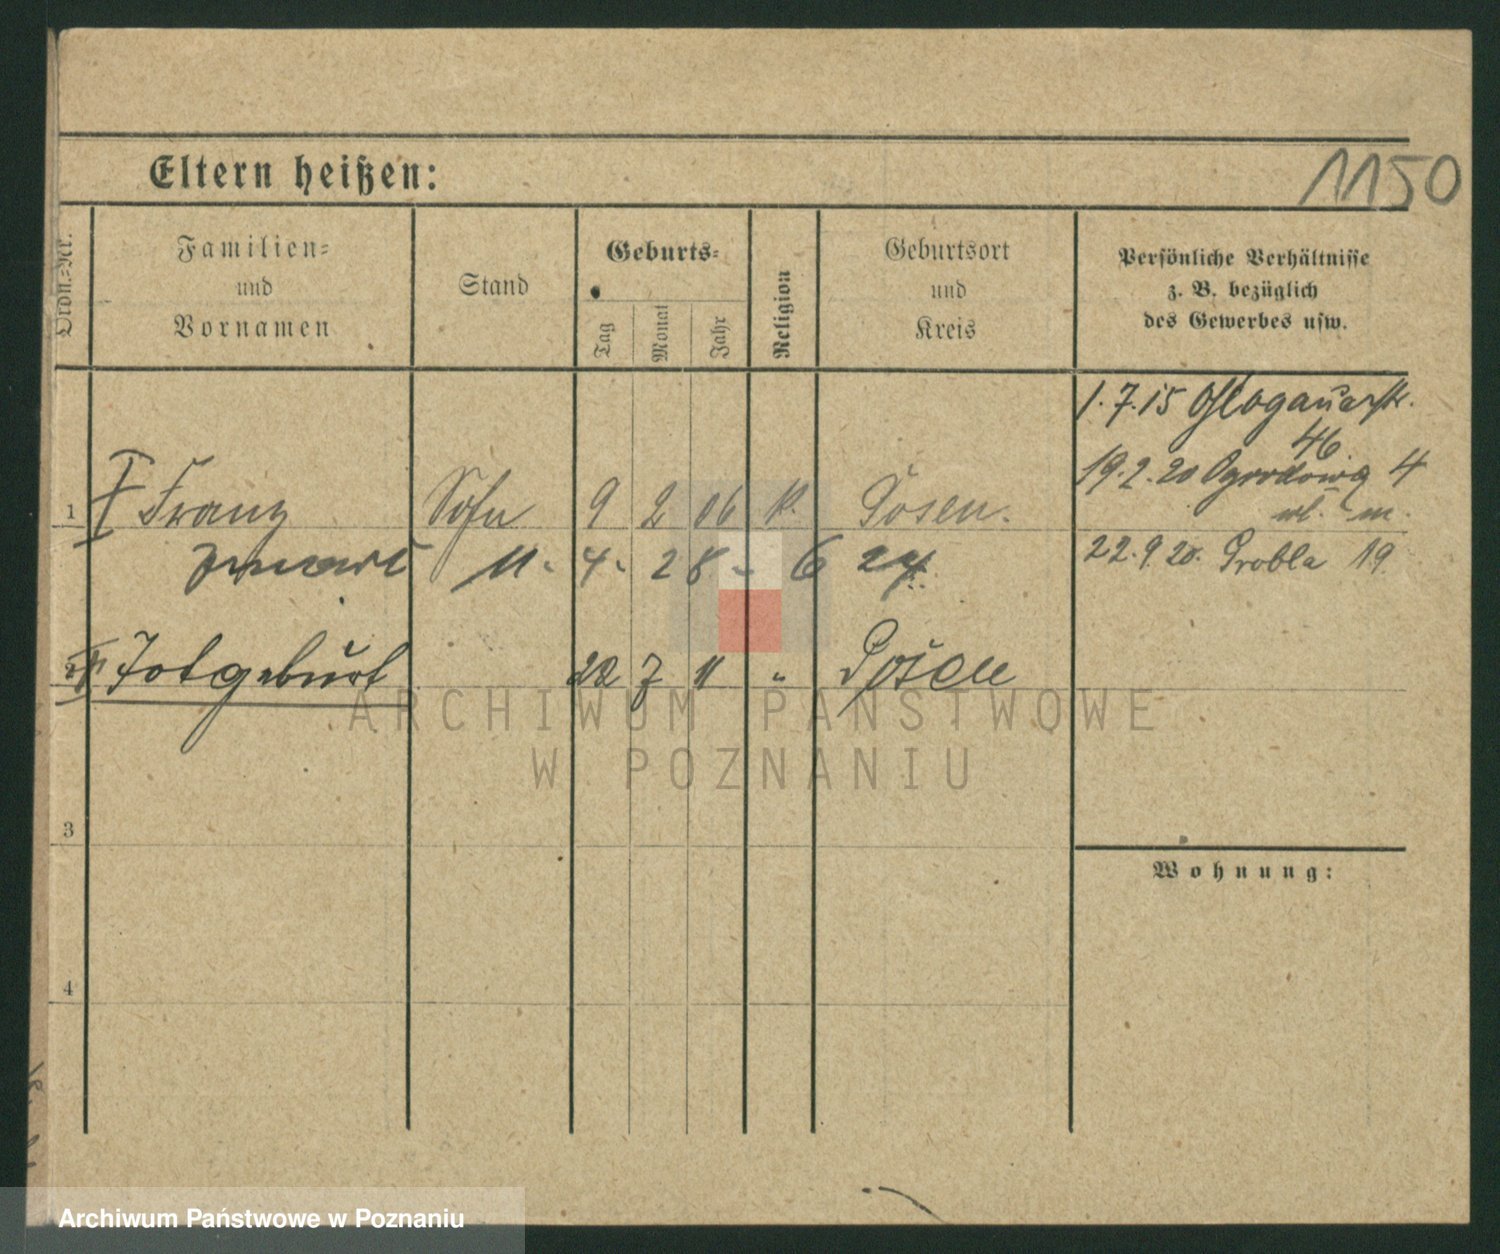 Eltern heißen:
1150
Ordn.-Nr.
Familien-
und
Vornamen
Stand
Geburts-
Tag
Monat
Jahr
Religion
Geburtsort
und
Kreis
Persönliche Verhältnisse
z. B. bezüglich
des Gewerbes usw.
1.7.15 Glogauerstr.
46.
19.2.20 Ogrodowa 4
m.
1 Franz Sohn 9 2 06 k. Posen.
zmarł 11. 4. 28 - 6 24
22.9.20. Grobla 19.
Totgeburt 22 7 11 " Posen
3
Wohnung:
4
ARCHIWUM PAŃSTWOWE
W POZNANIU
Archiwum Państwowe w Poznaniu